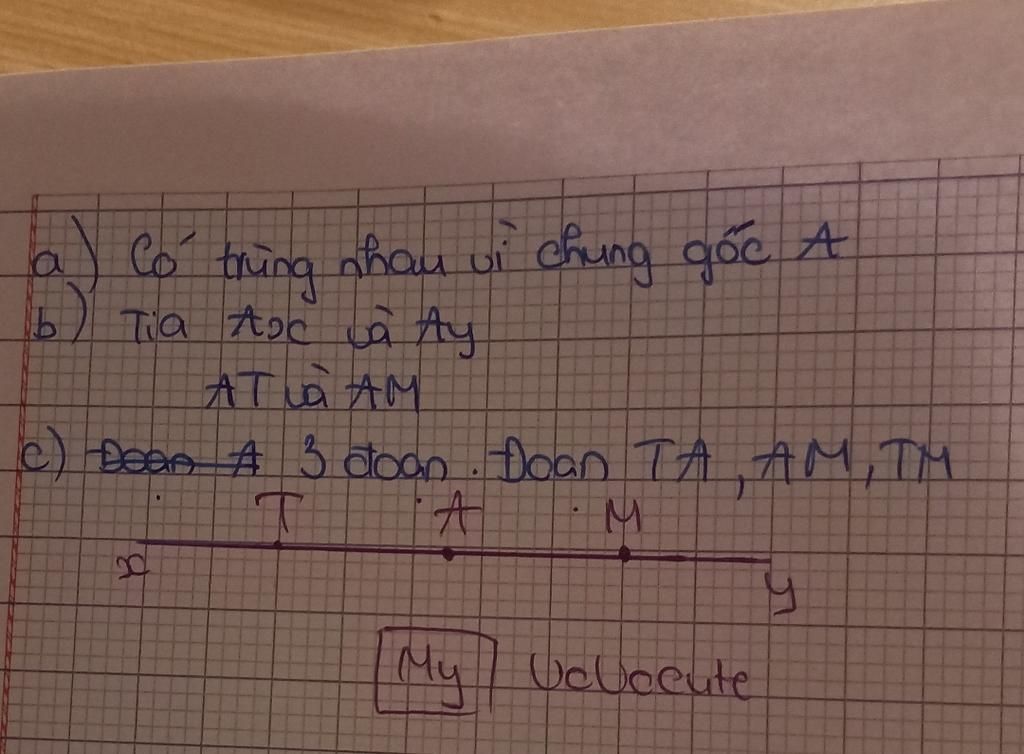 a) Có trùng nhau vì chung gốc A
b) Tia Ax và Ay
AT và AM
c) Đoạn A 3 đoạn. Đoạn TA, AM, TM
T A M
x y
My VcVceute